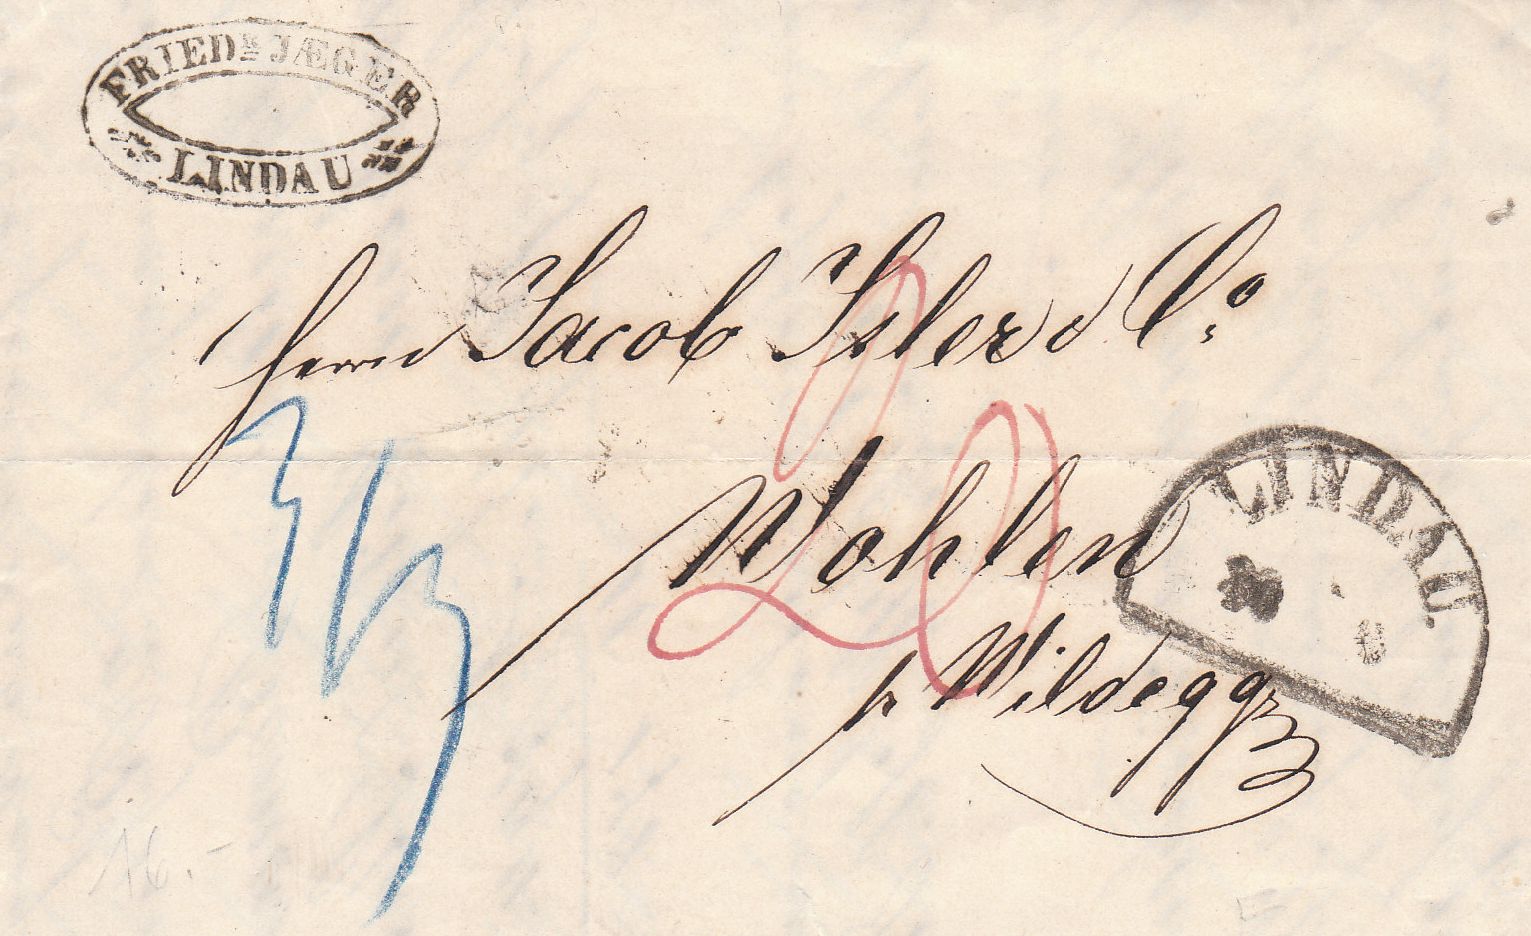 FRIEDR JÆGER
LINDAU
Herrn Jacob Isler & Co.
Wohlen
pr Wildegg
LINDAU.
20
3/3
16.-